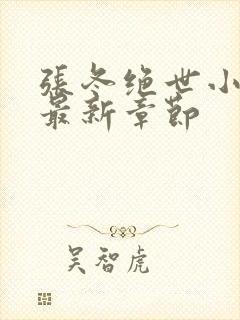 張冬绝世小
最新章節
吴智虎